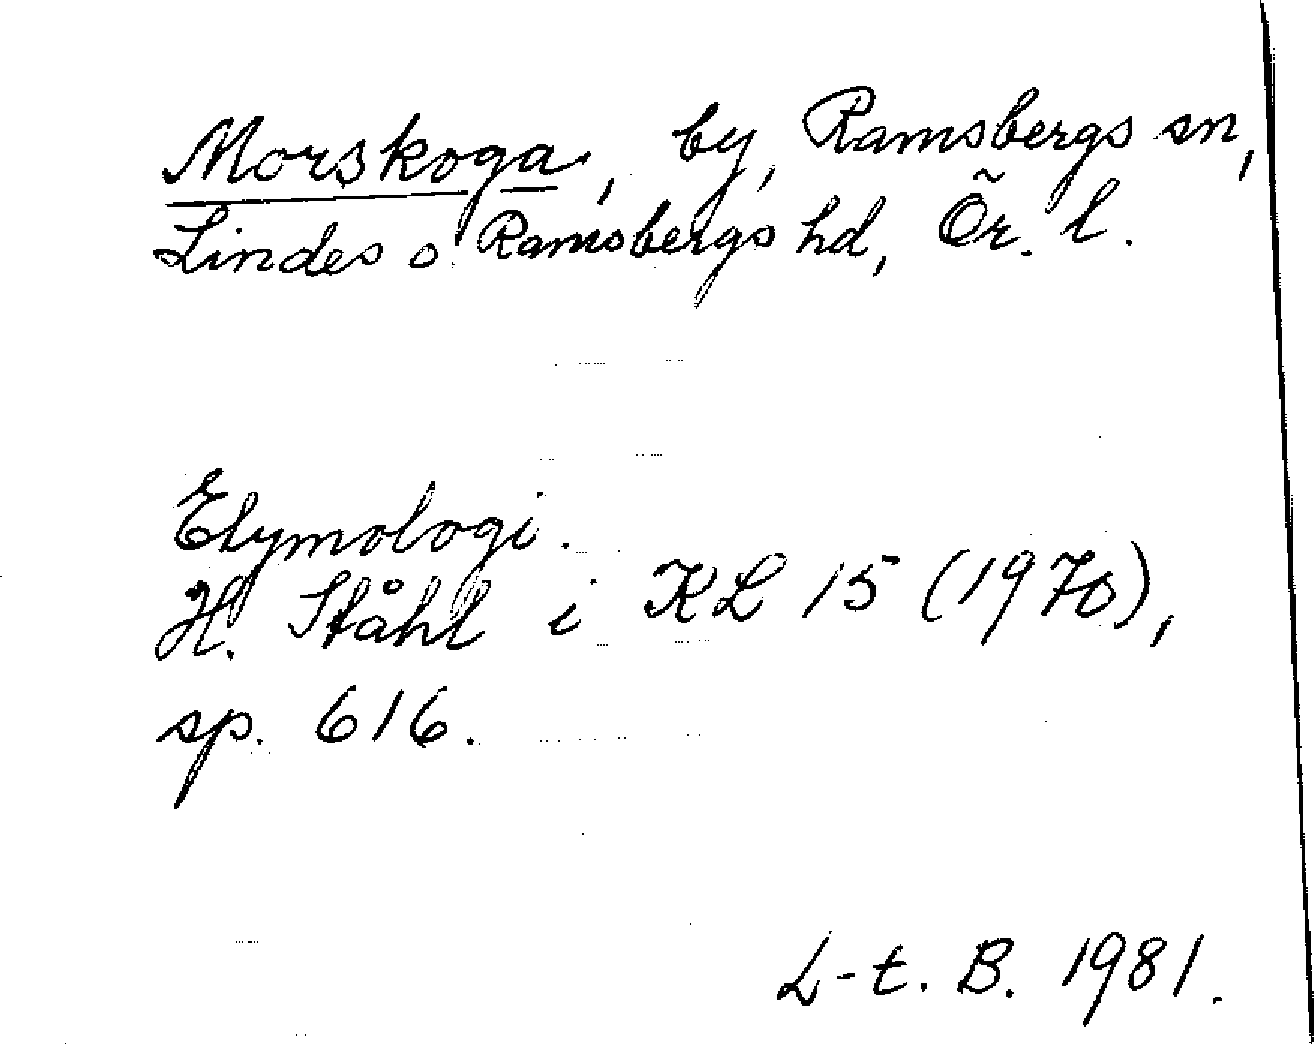 Morskoga, by, Ramsbergs sn,
Lindes o Ramsbergs hd, Ör. l.
Etymologi.
H. Ståhl i KL 15 (1970),
sp. 616.
L-t. B. 1981.